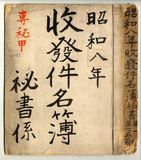 昭和八年
收發件名簿
専秘甲
秘書係
昭和八年收發件名簿秘書